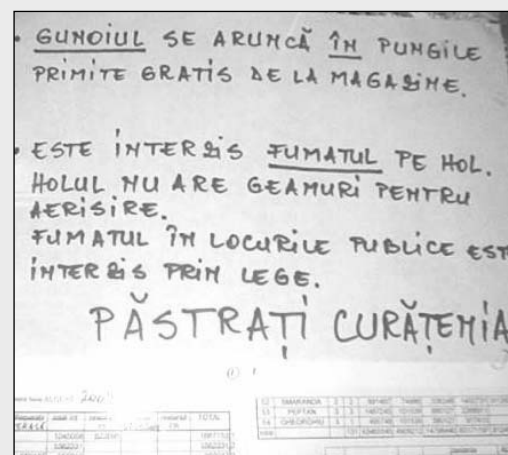 • GUNOIUL SE ARUNCĂ ÎN PUNGILE
PRIMITE GRATIS DE LA MAGAZINE.
• ESTE INTERZIS FUMATUL PE HOL.
HOLUL NU ARE GEAMURI PENTRU
AERISIRE.
FUMATUL ÎN LOCURILE PUBLICE EST
INTERZIS PRIN LEGE.
PĂSTRAȚI CURĂȚENIA
TOTAL
12 SMARANDA
13
14 GHEORGHIU